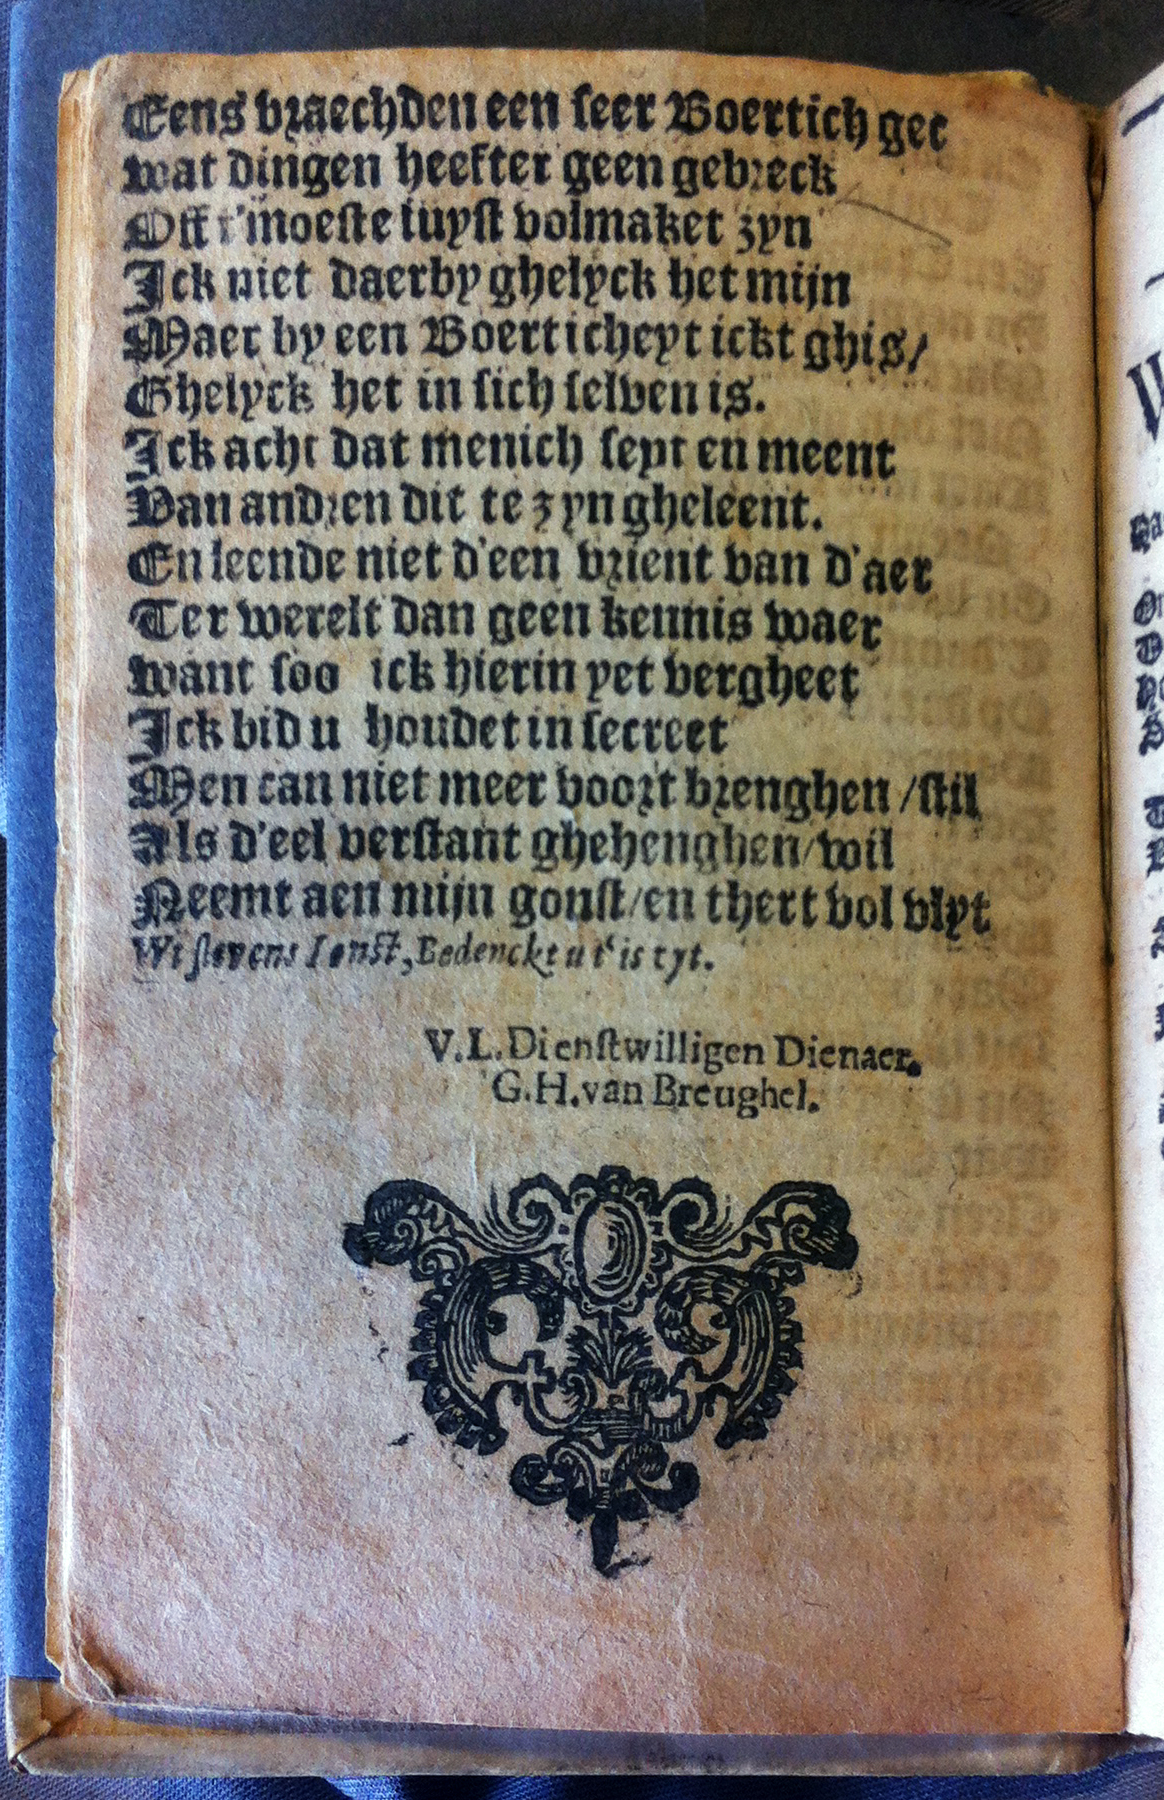 Eens vraechden een seer Boertich gec
wat dingen heefter geen gebreck
Off t'moeste iuyst volmaket zyn
Ick niet daerby ghelyck het mijn
Maer by een Boerticheyt ickt ghis/
Ghelyck het in sich selven is.
Ick acht dat menich seyt en meent
Van andren dit te zyn gheleent.
En leende niet d'een vrient van d'aer
Ter werelt dan geen kennis waer
want soo ick hierin yet vergheet
Ick bid u houdet in secreet
Men can niet meer voort brenghen /stil
Als d'eel verstant ghehenghen/wil
Neemt aen mijn gonst/en thert vol vlyt
Wt slevens Ionst, Bedenckt u t' is tyt.
V.L. Dienstwilligen Dienaer.
G.H.van Breughel.